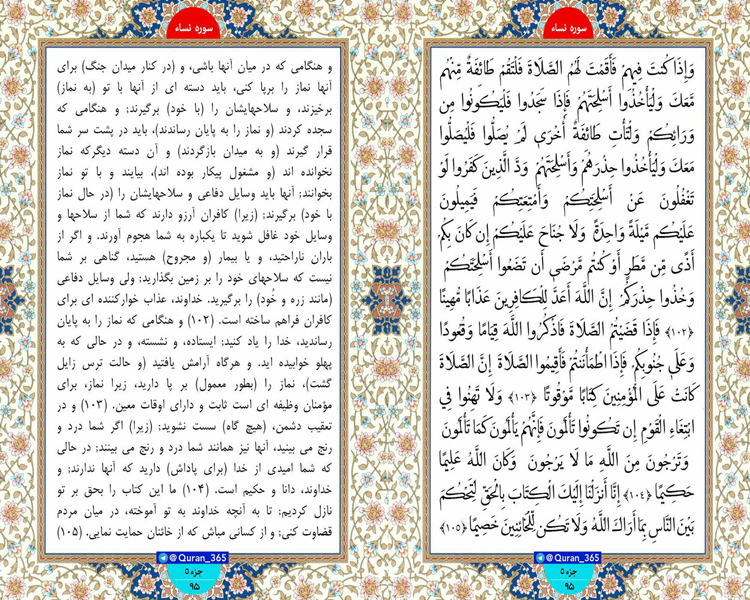 سوره نساء
وَإِذَا كُنتَ فِيهِمْ فَأَقَمْتَ لَهُمُ الصَّلَاةَ فَلْتَقُمْ طَائِفَةٌ مِّنْهُم
مَّعَكَ وَلْيَأْخُذُوا أَسْلِحَتَهُمْ فَإِذَا سَجَدُوا فَلْيَكُونُوا مِن
وَرَائِكُمْ وَلْتَأْتِ طَائِفَةٌ أُخْرَى لَمْ يُصَلُّوا فَلْيُصَلُّوا
مَعَكَ وَلْيَأْخُذُوا حِذْرَهُمْ وَأَسْلِحَتَهُمْ وَدَّ الَّذِينَ كَفَرُوا لَوْ
تَغْفُلُونَ عَنْ أَسْلِحَتِكُمْ وَأَمْتِعَتِكُمْ فَيَمِيلُونَ
عَلَيْكُم مَّيْلَةً وَاحِدَةً وَلَا جُنَاحَ عَلَيْكُمْ إِن كَانَ بِكُمْ
أَذًى مِّن مَّطَرٍ أَوْ كُنتُم مَّرْضَى أَن تَضَعُوا أَسْلِحَتَكُمْ
وَخُذُوا حِذْرَكُمْ إِنَّ اللَّهَ أَعَدَّ لِلْكَافِرِينَ عَذَابًا مُّهِينًا
﴿۱۰۲﴾ فَإِذَا قَضَيْتُمُ الصَّلَاةَ فَاذْكُرُوا اللَّهَ قِيَامًا وَقُعُودًا
وَعَلَى جُنُوبِكُمْ فَإِذَا اطْمَأْنَنتُمْ فَأَقِيمُوا الصَّلَاةَ إِنَّ الصَّلَاةَ
كَانَتْ عَلَى الْمُؤْمِنِينَ كِتَابًا مَّوْقُوتًا ﴿۱۰۳﴾ وَلَا تَهِنُوا فِي
ابْتِغَاءِ الْقَوْمِ إِن تَكُونُوا تَأْلَمُونَ فَإِنَّهُمْ يَأْلَمُونَ كَمَا تَأْلَمُونَ
وَتَرْجُونَ مِنَ اللَّهِ مَا لَا يَرْجُونَ وَكَانَ اللَّهُ عَلِيمًا
حَكِيمًا ﴿۱۰۴﴾ إِنَّا أَنزَلْنَا إِلَيْكَ الْكِتَابَ بِالْحَقِّ لِتَحْكُمَ
بَيْنَ النَّاسِ بِمَا أَرَاكَ اللَّهُ وَلَا تَكُن لِّلْخَائِنِينَ خَصِيمًا ﴿۱۰۵﴾
@Quran_365
جزء ۵
۹۵
سوره نساء
و هنگامی که در میان آنها باشی، و (در کنار میدان جنگ) برای
آنها نماز را برپا کنی، باید دسته ای از آنها با تو (به نماز)
برخیزند، و سلاحهایشان را (با خود) برگیرند; و هنگامی که
سجده کردند (و نماز را به پایان رساندند)، باید در پشت سر شما
قرار گیرند (و به میدان بازگردند) و آن دسته دیگرکه نماز
نخوانده اند (و مشغول پیکار بوده اند)، بیایند و با تو نماز
بخوانند; آنها باید وسایل دفاعی و سلاحهایشان را (در حال نماز
با خود) برگیرند; (زیرا) کافران آرزو دارند که شما از سلاحها و
وسایل خود غافل شوید تا یکباره به شما هجوم آورند. و اگر از
باران ناراحتید، و یا بیمار (و مجروح) هستید، گناهی بر شما
نیست که سلاحهای خود را بر زمین بگذارید; ولی وسایل دفاعی
(مانند زره و خُود) را برگیرید. خداوند، عذاب خوارکننده ای برای
کافران فراهم ساخته است. (۱۰۲) و هنگامی که نماز را به پایان
رساندید، خدا را یاد کنید; ایستاده، و نشسته، و در حالی که به
پهلو خوابیده اید. و هرگاه آرامش یافتید (و حالت ترس زایل
گشت)، نماز را (بطور معمول) بر پا دارید، زیرا نماز، برای
مؤمنان وظیفه ای است ثابت و دارای اوقات معین. (۱۰۳) و در
تعقیب دشمن، (هیچ گاه) سست نشوید; (زیرا) اگر شما درد و
رنج می بینید، آنها نیز همانند شما درد و رنج می بینند; در حالی
که شما امیدی از خدا (برای پاداش) دارید که آنها ندارند; و
خداوند، دانا و حکیم است. (۱۰۴) ما این کتاب را بحق بر تو
نازل کردیم; تا به آنچه خداوند به تو آموخته، در میان مردم
قضاوت کنی; و از کسانی مباش که از خائنان حمایت نمایی. (۱۰۵)
@Quran_365
جزء ۵
۹۵